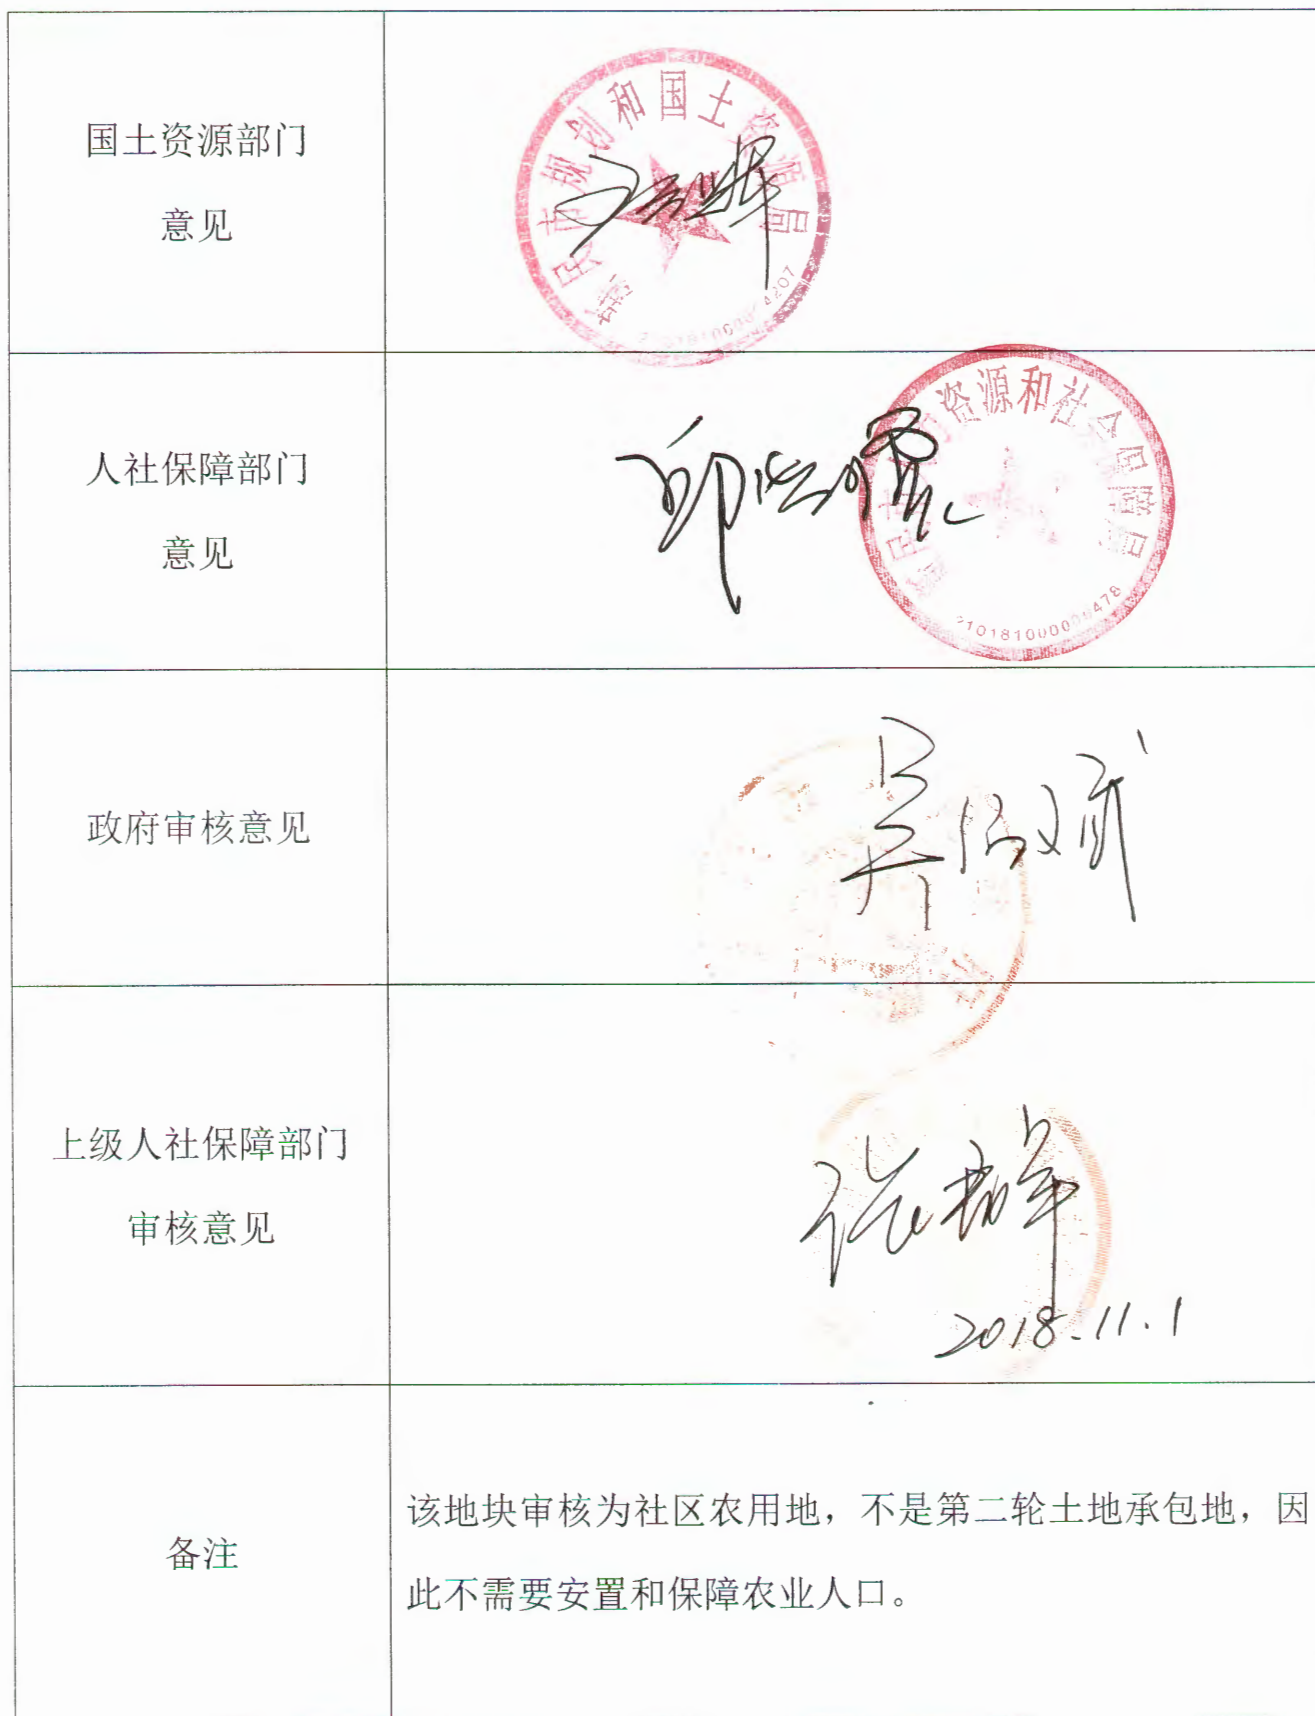 国土资源部门
意见
新民市规划和国土资源局
人社保障部门
意见
资源和社会保障局
政府审核意见
上级人社保障部门
审核意见
2018.11.1
备注
该地块审核为社区农用地，不是第二轮土地承包地，因
此不需要安置和保障农业人口。